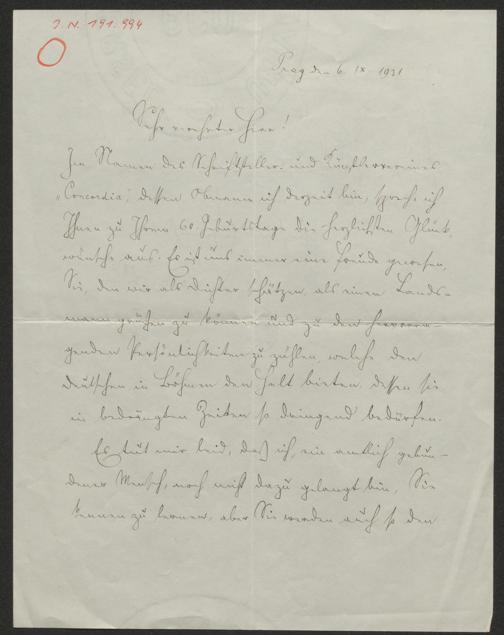 J. N. 191.994
Prag den 6 IX 1931
Sehr verehrter Herr!
Im Namen des Schriftsteller- und Künstlervereines
„Concordia“, dessen Obmann ich derzeit bin, spreche ich
Ihnen zu Ihrem 60. Geburtstage die herzlichsten Glück-
wünsche aus. Es ist uns immer eine Freude gewesen,
Sie, den wir als Dichter schätzen, als einen Lands-
mann grüßen zu können und zu den hervorra-
genden Persönlichkeiten zu zählen, welche den
Deutschen in Böhmen den Halt bieten, dessen sie
in bedrängten Zeiten so dringend bedürfen.
Es tut mir leid, daß ich, ein amtlich gebun-
dener Mensch, noch nicht dazu gelangt bin, Sie
kennen zu lernen, aber Sie werden auch so den